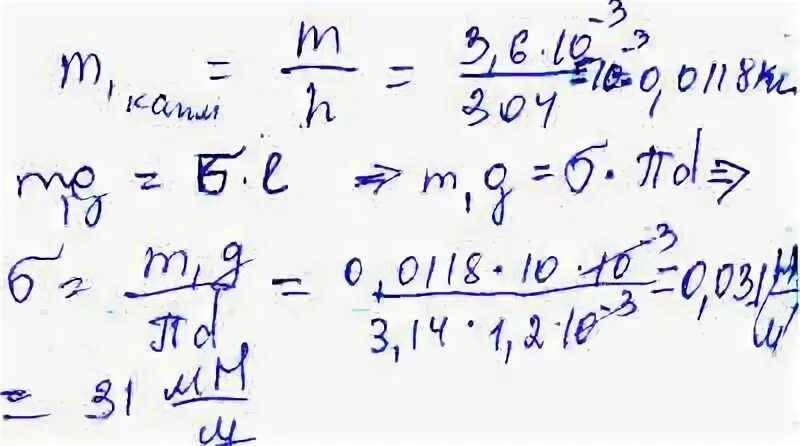 m₁ капли = m/n = 3,6·10⁻³/304 = 10⁻³·0,0118 кг
m₁g = σ·l ⇒ m₁g = σ·πd ⇒
σ = m₁g/πd = 0,0118·10·10⁻³/3,14·1,2·10⁻³ = 0,031 Н/м
= 31 мН/м